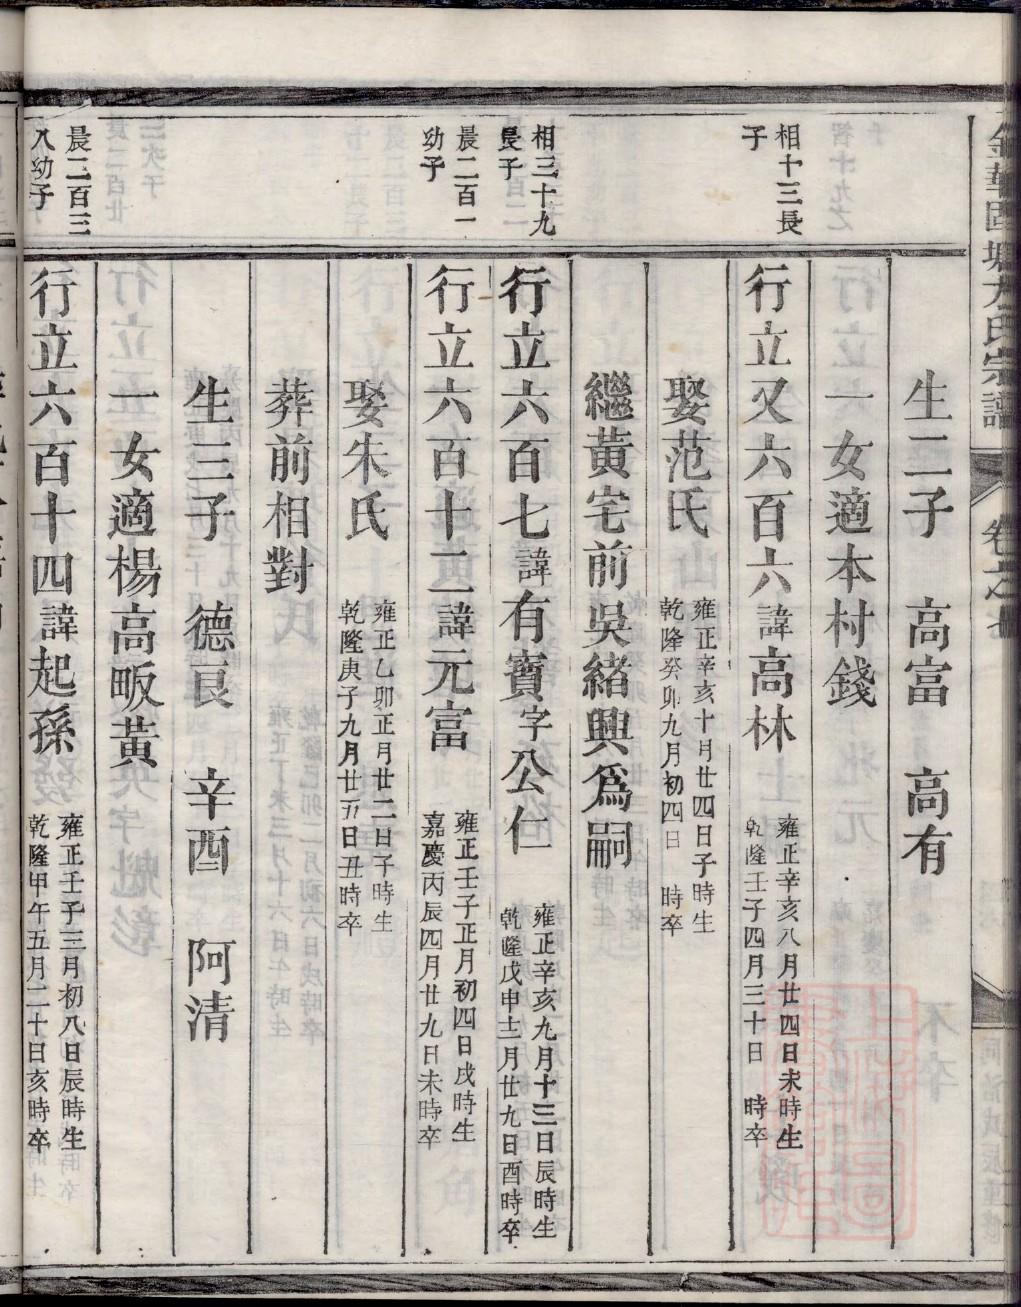 卷之七
生二子 高富 高有
一女適本村錢
相十三長子
行立又六百六諱高林 雍正辛亥八月廿四日未時生 乾隆壬子四月三十日 時卒
娶范氏 雍正辛亥十月廿四日子時生 乾隆癸卯九月初四日 時卒
繼黃宅前吳緒興爲嗣
相三十九長子
行立六百七諱有寶字公仁 雍正辛亥九月十三日辰時生 乾隆戊申十一月廿九日酉時卒
晨二百一幼子
行立六百十二諱元富 雍正壬子正月初四日戌時生 嘉慶丙辰四月廿九日未時卒
娶朱氏 雍正乙卯正月廿二日子時生 乾隆庚子九月廿五日丑時卒
葬前相對
生三子 德良 辛酉 阿清
一女適楊高畈黃
晨二百三八幼子
行立六百十四諱起孫 雍正壬子三月初八日辰時生 乾隆甲午五月二十日亥時卒